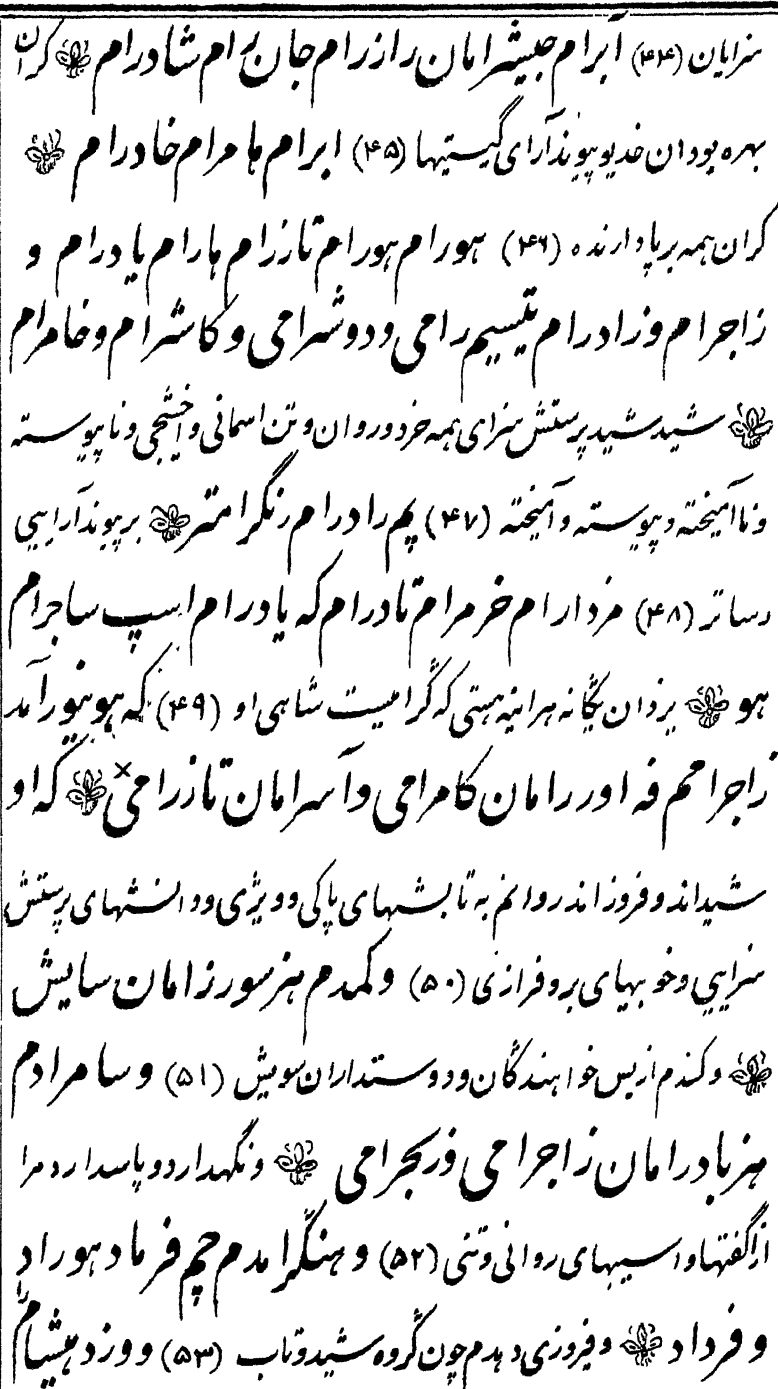 سزایان (۴۴) آبرام جیشرامان رازرام جان رام شادرام کران
بهره بودان خدیو پیوندآرای گیتیها (۴۵) ابرام هامرام خادرام
کران همه برپا دارنده (۴۶) هورام هورام تازرام هارام یادرام و
زاجرام وزادرام تیسیم رامی ودوشرامی وکاشرام وخامرام
شید شید پرستش سزای همه خرد و روان و تن اسمانی واخشیجی وناپیوسته
وناآمیخته و پیوسته وآمیخته (۴۷) پم رادرام رنگرامتر بر پیوندآرایی
رساتر (۴۸) مزدارام خرمرام تادرام که یادرام اسپ ساجرام
هو یزدان یگانه هراینه هستی که گرامیست شاهی او (۴۹) که هونیورآمد
زاجرامم فه اوررامان کامرامی وآسرامان تازرامی که او
شیداند وفروزاند روانم به تابشهای پاکی وویژی ودانشهای پرستش
سزایی وخوبیهای بروفرازی (۵۰) وکمدم هزسورزامان سایش
وکندم ازبس خواهندگان ودوستداران سویش (۵۱) وسامرادم
هزبادرامان زاجرامی وریجرامی ونگهدارد و پاسدارد مرا
ازاگفتها واسیبهای روانی وتنی (۵۲) وهنگرامدم چم فرماد هوراد
وفرداد وفیروزی دهدم چون گروه شید وتاب (۵۳) ووزد هیشیام را